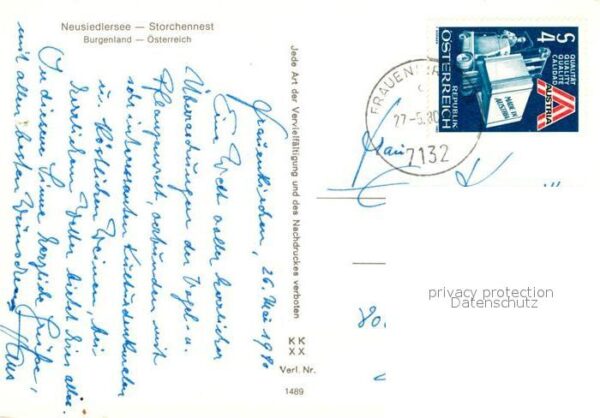 Neusiedlersee — Storchennest
Burgenland — Österreich
Frauenkirchen, 26. Mai 1980
Eine Welt voller herrlicher
Überraschungen der Vogel- u.
Pflanzenwelt, verbunden mit
sehr interessanten Kulturdenkmälern
u. köstlichen Weinen, bei
herrlichem Wetter bietet sich alles.
In diesem Sinne herzliche Grüße,
mit allen besten Wünschen
Hans
Jede Art der Vervielfältigung und des Nachdruckes verboten
KK
XX
Verl. Nr.
1489
FRAUENKI
27-5.80
7132
S 4
QUALITÄT
QUALITY
QUALITÉ
CALIDAD
AUSTRIA
MADE IN AUSTRIA
REPUBLIK
ÖSTERREICH
Frau
K
80
privacy protection
Datenschutz